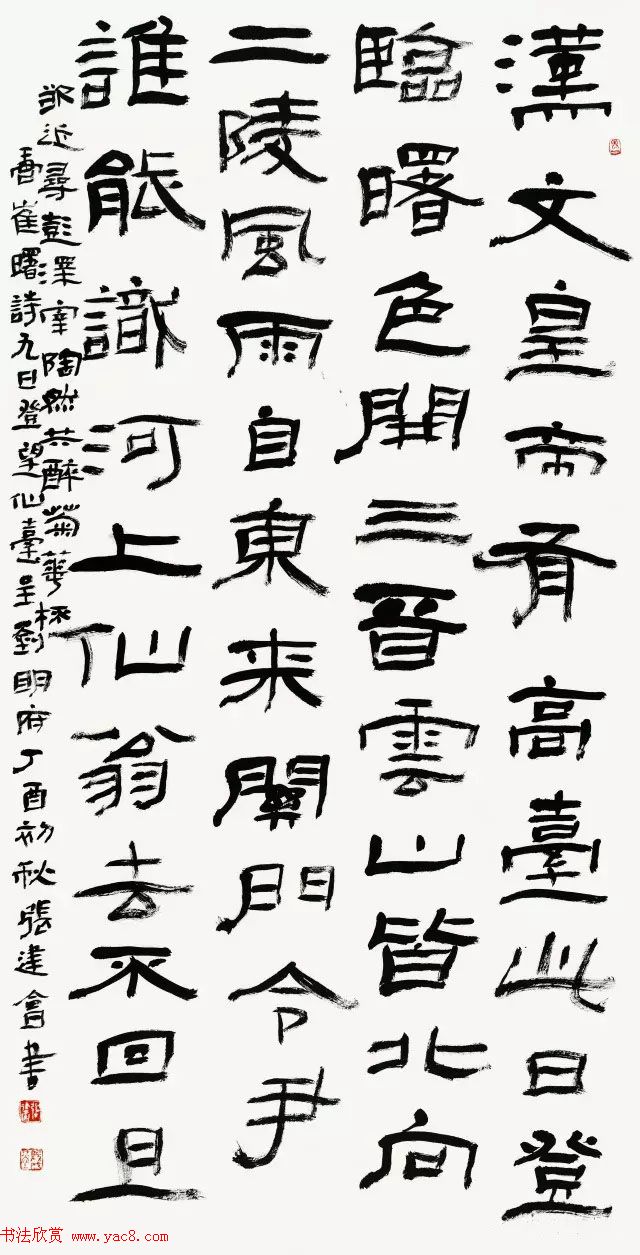 漢文皇帝有高臺此日登
臨曙色開三晉雲山皆北向
二陵風雨自東來關門令尹
誰能識河上仙翁去不回且
欲近尋彭澤宰陶然共醉菊華杯
崔曙詩九日登望仙臺呈劉明府丁酉初秋張建會書
书法欣赏 www.yac8.com